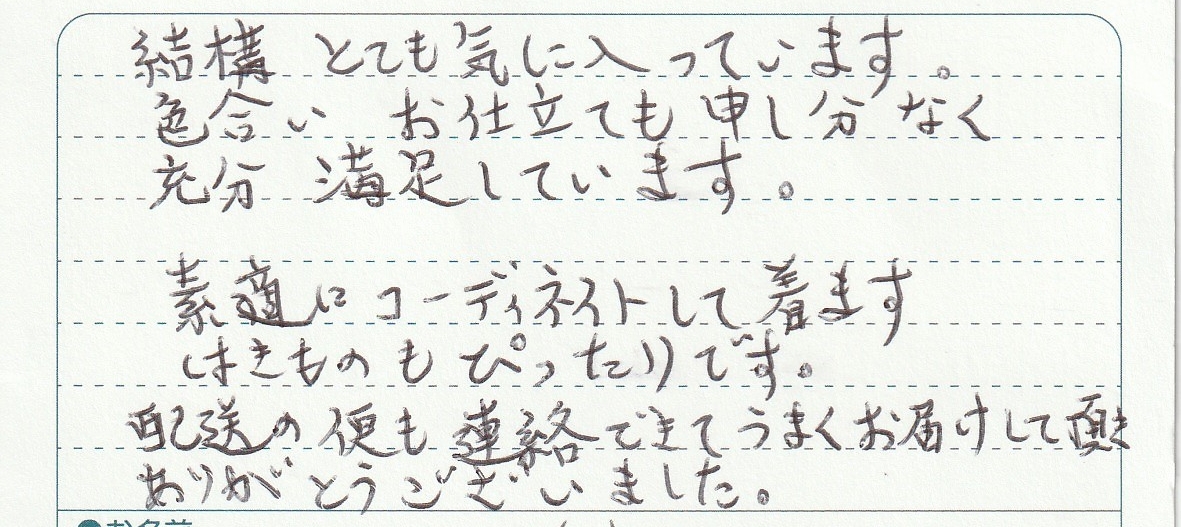 結構 とても気に入っています。
色合い お仕立ても申し分なく
充分 満足しています。
素適にコーディネイトして着ます
はきものもぴったりです。
配送の便も連絡できてうまくお届けして頂き
ありがとうございました。
●お名前